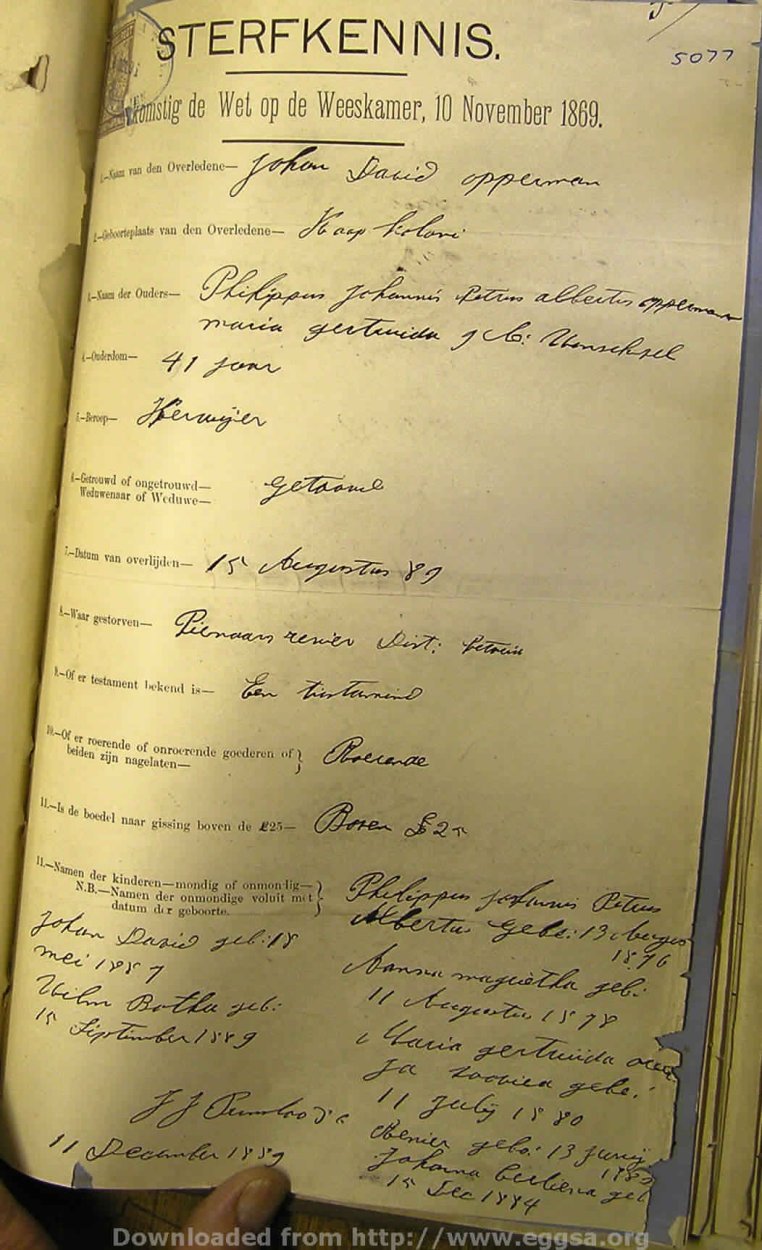 5077
STERFKENNIS.
komstig de Wet op de Weeskamer, 10 November 1869.
1.—Naam van den Overledene— Johan David opperman
2.—Geboorteplaats van den Overledene— Kaap koloni
3.—Naam der Ouders— Philippus Johannis Petrus albertus opperman
maria gertruida
4.—Ouderdom— 41 jaar
5.—Beroep—
6.—Getrouwd of ongetrouwd—
Weduwenaar of Weduwe—
7.—Datum van overlijden— 15 Augustus 89
8.—Waar gestorven— Pienaars revier Dist:
9.—Of er testament bekend is— Een
10.—Of er roerende of onroerende goederen of
beiden zijn nagelaten— Roerende
11.—Is de boedel naar gissing boven de £25— Boven £25
11.—Namen der kinderen—mondig of onmondig—
N.B.—Namen der onmondige voluit met
datum der geboorte.
Philippus Johannis Petrus
Albertus Gebo: 13
1876
geb:
11 Augustus 1878
Maria gertruida
gebo:
11 July 1880
Renier gebo: 13 Junij
1882
Johanna geb
15 Dec 1884
Johan David geb: 18
mei 1887
Botha geb:
15 September 1889
J J
11 December 1889
Downloaded from http://www.eggsa.org